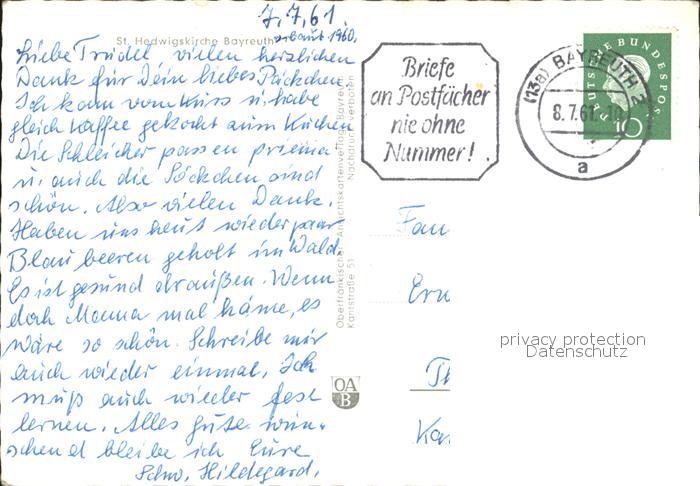 7.7.61.
St. Hedwigskirche Bayreuth
erbaut 1960.
Liebe Trudel vielen herzlichen
Dank für Dein liebes Päckchen
Ich kam vom Kurs u. habe
gleich Kaffee gekocht zum Kuchen
Die Schleicher passen priema
u. auch die Söckchen sind
schön. Also vielen Dank.
Haben uns heut wieder paar
Blaubeeren geholt im Wald.
Es ist gesund draußen. Wenn
doch Mama mal käme, es
wäre so schön. Schreibe mir
auch wieder einmal, Ich
muß auch wieder fest
lernen. Alles Gute wün-
schend bleibe ich Eure
Schw. Hildegard.
Oberfränkischer Ansichtskartenverlag Bayreuth
Kantstraße 51
Nachdruck verboten
OA
B
Briefe
an Postfächer
nie ohne
Nummer!
(13a) BAYREUTH 2
8.7.61
a
DEUTSCHE BUNDESPOST
10
Fam
Ern
Th
Kar
privacy protection
Datenschutz